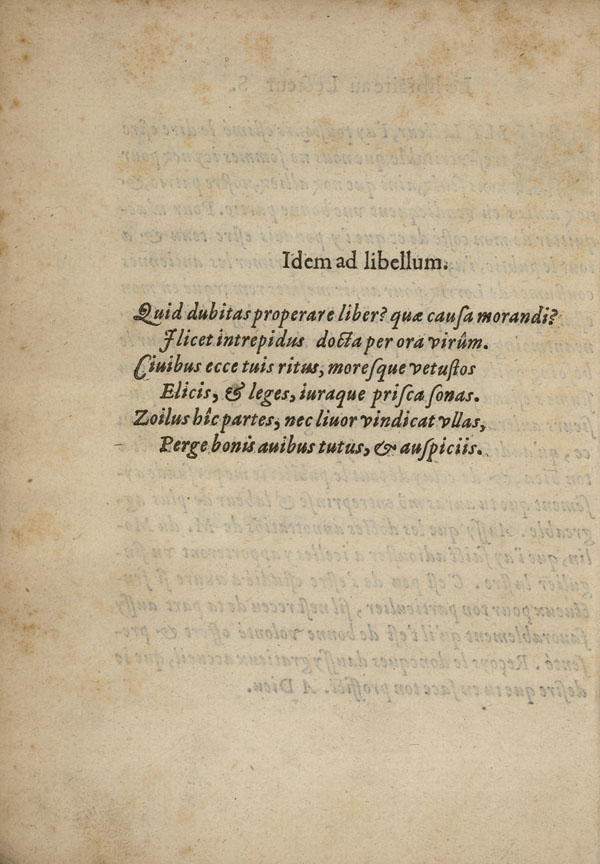 Idem ad libellum.
Quid dubitas properare liber? quæ causa morandi?
Ilicet intrepidus docta per ora virûm.
Ciuibus ecce tuis ritus, moresque vetustos
Elicis, & leges, iuraque prisca sonas.
Zoilus hîc partes, nec liuor vindicat vllas,
Perge bonis auibus tutus, & auspiciis.